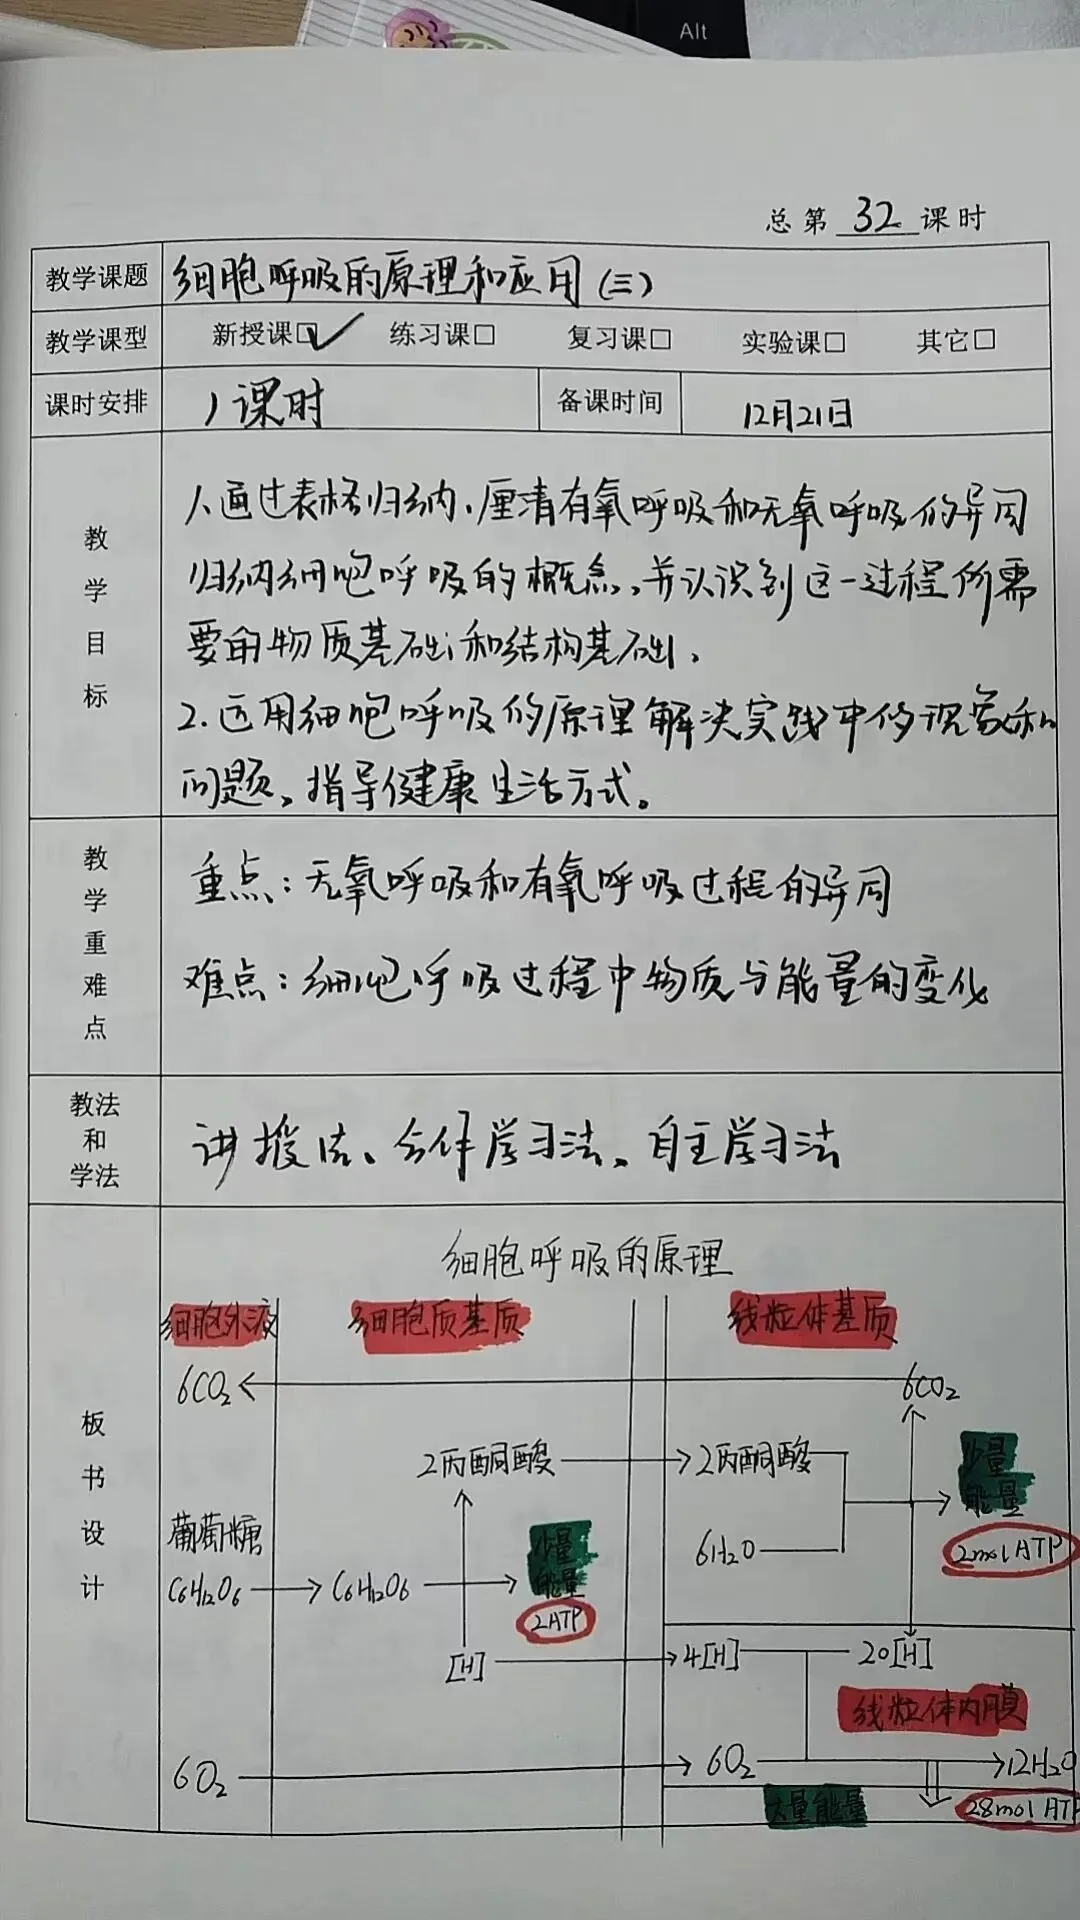 Alt
总第 32 课时
教学课题 细胞呼吸的原理和应用(三)
教学课型 新授课□✓ 练习课□ 复习课□ 实验课□ 其它□
课时安排 1课时 备课时间 12月21日
教学目标
1.通过表格归纳、厘清有氧呼吸和无氧呼吸的异同
归纳细胞呼吸的概念,并认识到这一过程所需
要的物质基础和结构基础.
2.运用细胞呼吸的原理解决实践中的现象和
问题,指导健康生活方式。
教学重难点
重点:无氧呼吸和有氧呼吸过程的异同
难点:细胞呼吸过程中物质与能量的变化
教法和学法
讲授法、合作学习法、自主学习法
板书设计
细胞呼吸的原理
细胞外液 细胞质基质 线粒体基质
6CO₂ 6CO₂
2丙酮酸 2丙酮酸 少量能量
葡萄糖 少量能量 6H₂O 2molATP
C₆H₁₂O₆ C₆H₁₂O₆ 2ATP
[H] 4[H] 20[H]
线粒体内膜
6O₂ 6O₂ 12H₂O
大量能量 28molATP